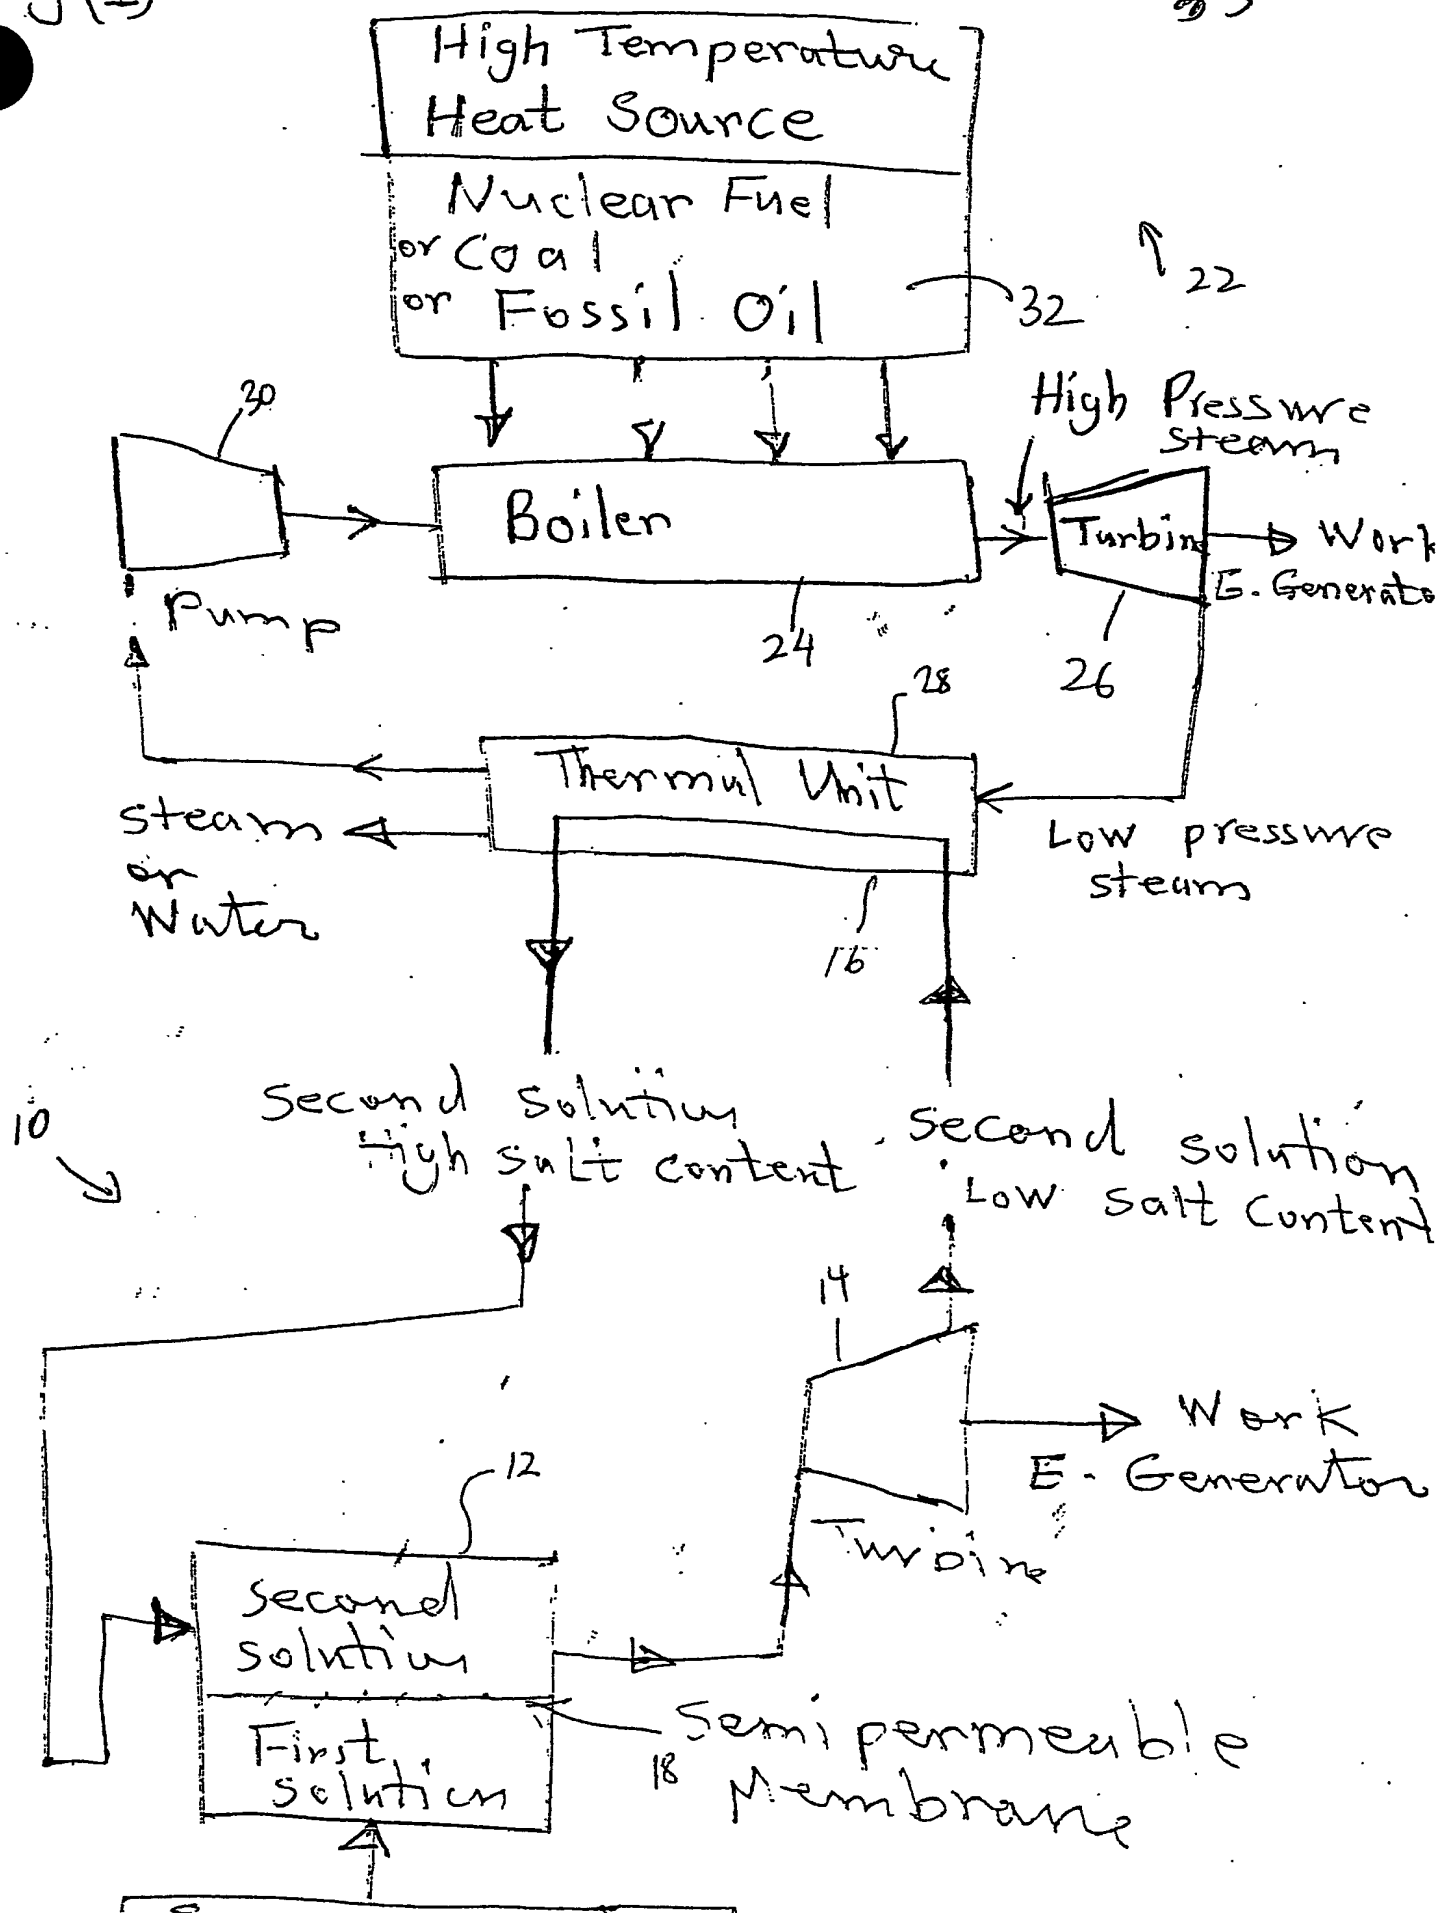 High Temperature
Heat Source
Nuclear Fuel
or Coal
or Fossil Oil
32
22
30
High Pressure
steam
Boiler
Turbin
Work
E. Generato
Pump
24
26
28
Thermal Unit
steam
or
Water
Low pressure
steam
16
10
Second solution
High salt content
Second solution
Low Salt Content
14
Work
E - Generator
Turbine
12
Second
solution
First
solution
18
Semipermeable
Membrane